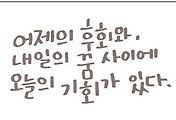 어제의 후회와,
내일의 꿈 사이에
오늘의 기회가 있다.